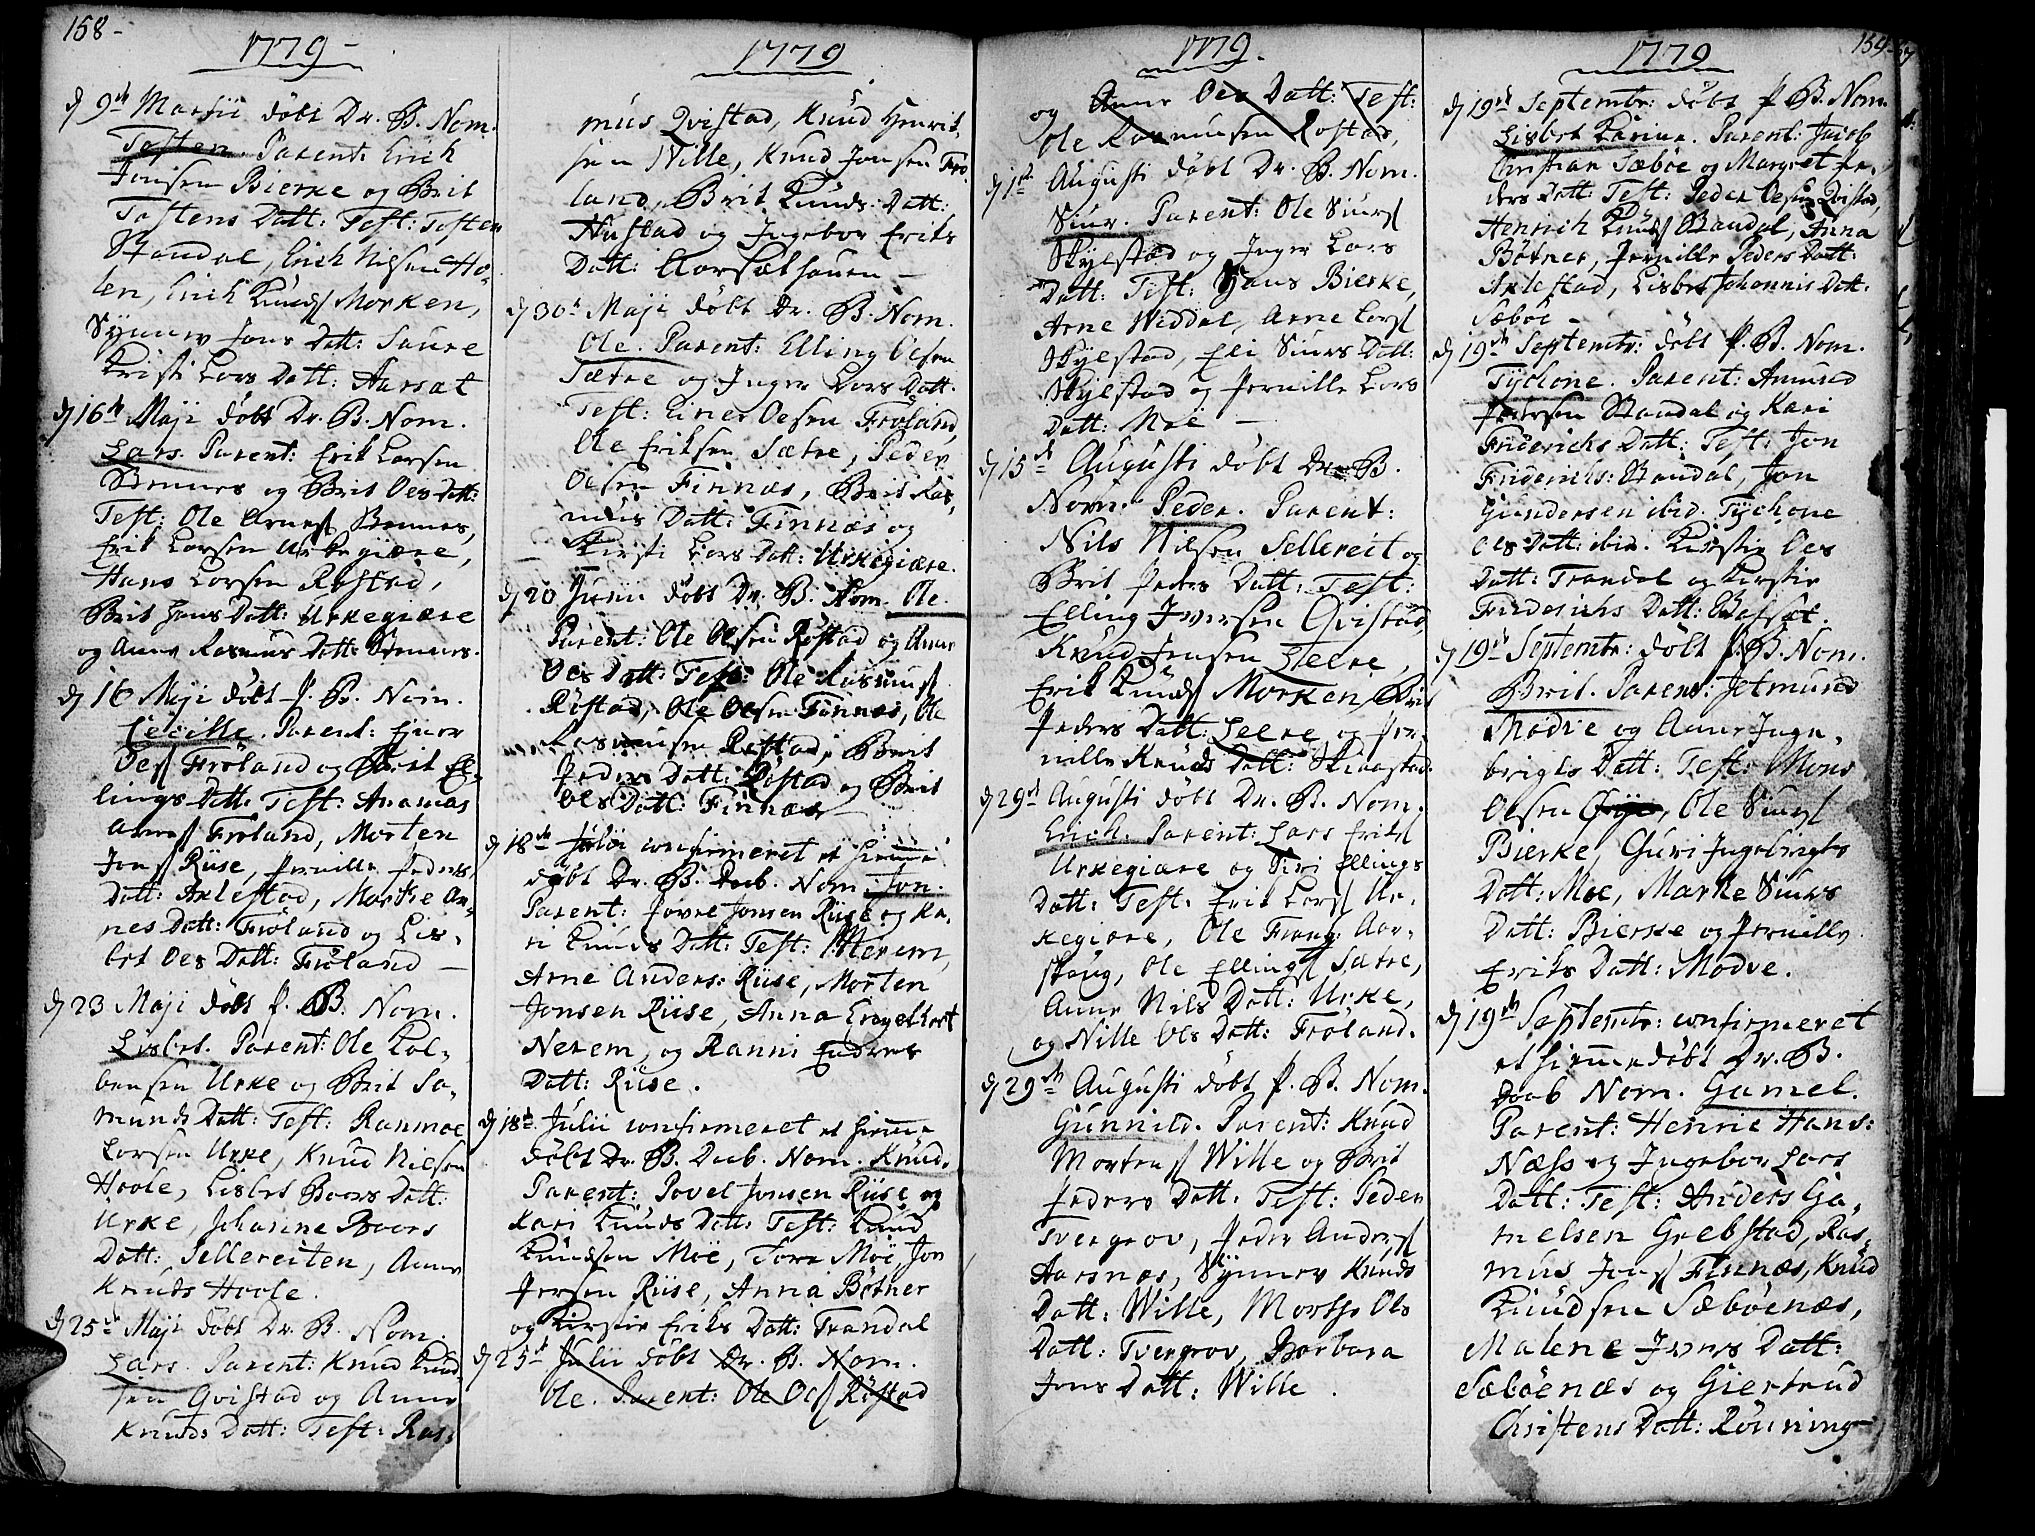 158-
1779-
d 9de Martii döbt Dr. B. Nom.
Tosten. Parent: Erich
Jonsen Bierke og Brit
Tostens Datt: Test: Tosten
Standal, Erich Nilsen Ho-
len, Erich Knuds Morken,
Synnev Jons Datt: Saure
Kristi Lars Datt: Aarsæt
d 16de Maji döbt Dr. B. Nom.
Lars. Parent: Erik Larsen
Stennes og Brit Oes Datt:
Test: Ole Arnes Bennes,
Erik Larsen Urkegiære,
Hans Larsen Röstad,
Brit Hans Datt: Urkegiære
og Anne Rasmus Datt: Stennes.
d 16 Maji döbt P. B. Nom.
Cecille. Parent: Ejner
Oes Fröland og Brit El-
lings Datt: Test: Ananias
Arnes Fröland, Morten
Jons Riise, Pernille Peders
Datt: Axlestad, Martte Ar-
nes Datt: Fröland og Lis-
bet Oes Datt: Fröland -
d 23 Maji döbt P. B. Nom.
Lisbet. Parent: Ole Kol-
bensen Urke og Brit Sa-
munds Datt: Test: Ranmoe
Larsen Urke, Knud Nielsen
Hoole, Lisbet Baars Datt:
Urke, Johanne Baars
Datt: Sellereiten, Anne
Knuds Hoole.
d 25de Maji döbt Dr. B. Nom.
Lars. Parent: Knud Knud-
sen Qvistad og Anne
Knuds Datt: Test: Ras-
1779
mus Qvistad, Knud Henrik-
sen Nille, Knud Jonsen Frö-
land, Brit Knuds Datt:
Nustad og Ingebor Eriks
Datt: Aarsæthauen -
d 30d Maji döbt Dr. B. Nom.
Ole. Parent: Elling Oesen
Sætre og Inger Lars Datt:
Test: Einer Oesen Fröland,
Ole Eriksen Sætre, Peder
Oesen Finnæs, Brit Ras-
mus Datt: Finnæs og
Kirsti Lars Datt: Urkegiære.
d 20 Junii döbt Dr. B. Nom. Ole.
Parent: Ole Olsen Röstad og Anne
Oes Datt: Test: Ole Rasmus
Röstad, Ole Oesen Finnæs, Ole
Rasmusen Röstad, Brit
Peders Datt: Röstad og Brit
Oes Datt: Finnæs
d 18de Julii confirmeret et hiemme
döbt Dr. B. Daab. Nom. Jon.
Parent: Povel Jonsen Riise og Ka-
ri Knuds Datt: Test: Merem,
Arne Anders: Riise, Morten
Jonsen Riise, Anna Engelkort
Nerem, og Ranni Endres
Datt: Riise.
d 18de Julii confirmeret et hiemme
döbt Dr. B. Daab. Nom. Knud.
Parent: Povel Jonsen Riise og
Kari Knuds Datt: Test: Knud
Knudsen Moe, Tore Moe, Jon
Persen Riise, Anna Bötner
og Kirstie Eriks Datt: Trandal
d 25de Julii döbt Dr. B. Nom.
Ole. Parent: Ole Ols Röstad
1779.
og Anne Oes Datt: Test:
Ole Rasmusen Rostad,
d 1ste Augusti döbt Dr. B. Nom.
Siur. Parent: Ole Siurs
Skylstad og Inger Lars
Datt: Test: Hans Bierke,
Arne Widdal, Arne Lars
Skylstad, Eli Siurs Datt:
Skylstad og Pernille Lars
Datt: Moe -
d 15de Augusti döbt Dr. B.
Nom. Peder. Parent:
Nils Nilsen Sellereit og
Brit Peders Datt: Test:
Elling Iversen Qvistad,
Knud Jensen Leere,
Erik Knuds Morken, Brit
Peders Datt: Leere og Per-
nille Knuds Datt: Skinastad.
d 29de Augusti döbt Dr. B. Nom.
Erich. Parent: Lars Eriks
Urkegiære og Siri Ellings
Datt: Test: Erik Lars Ur-
kegiære, Ole Frang: Aar-
skaug, Ole Ellings Sætre,
Anne Nils Datt: Urke,
og Nille Ols Datt: Fröland.
d 29de Augusti döbt P. B. Nom.
Gunnild. Parent: Knud
Mortens Wille og Brit
Peders Datt. Test: Peder
Tvergrov, Peder Anders
Aarsnæs, Synnev Knuds
Datt: Wille, Morthe Ols
Datt: Tvergrov, Barbara
Jons Datt: Wille.
1779
159
d 19de Septembr: döbt P. B. Nom.
Lisbet Karine. Parent: Jacob
Christian Sæböe og Margret Pe-
ders Datt: Test: Peder Oesen Qvistad,
Henrich Knuds Standal, Anna
Bötner, Pernille Peders Datt:
Axlestad, Lisbet Johannis Datt:
Sæböe -
d 19de Septembr: döbt P. B. Nom.
Tychone. Parent: Amund
Pedersen Standal og Kari
Friderichs Datt: Test: Jon
Friderichs: Standal, Jon
Gundersen ibid. Tychone
Oes Datt: ibid. Kirstie Oes
Datt: Trandal og Kirstie
Friderichs Datt:
d 19de Septembr: döbt P. B. Nom.
Brit. Parent: Jetmund
Modve og Anne Inge-
brigts Datt: Test: Mons
Olsen Oÿe, Ole Siurs
Bierke, Guri Ingebrigts
Datt: Moe, Marke Siurs
Datt: Bierke og Pernille
Eriks Datt: Modve.
d 19de Septembr: confirmeret
et hiemmedöbt Dr. B.
Daab Nom. Gamel.
Parent: Henric Hans:
Næss og Ingebor Lars
Datt: Test: Anders Ga-
melsen Grebstad, Ras-
mus Jons Finnæs, Knud
Knudsen Sæböenæs,
Malene Ivers Datt:
Sæböenæs og Giertrud
Christens Datt: Rönning